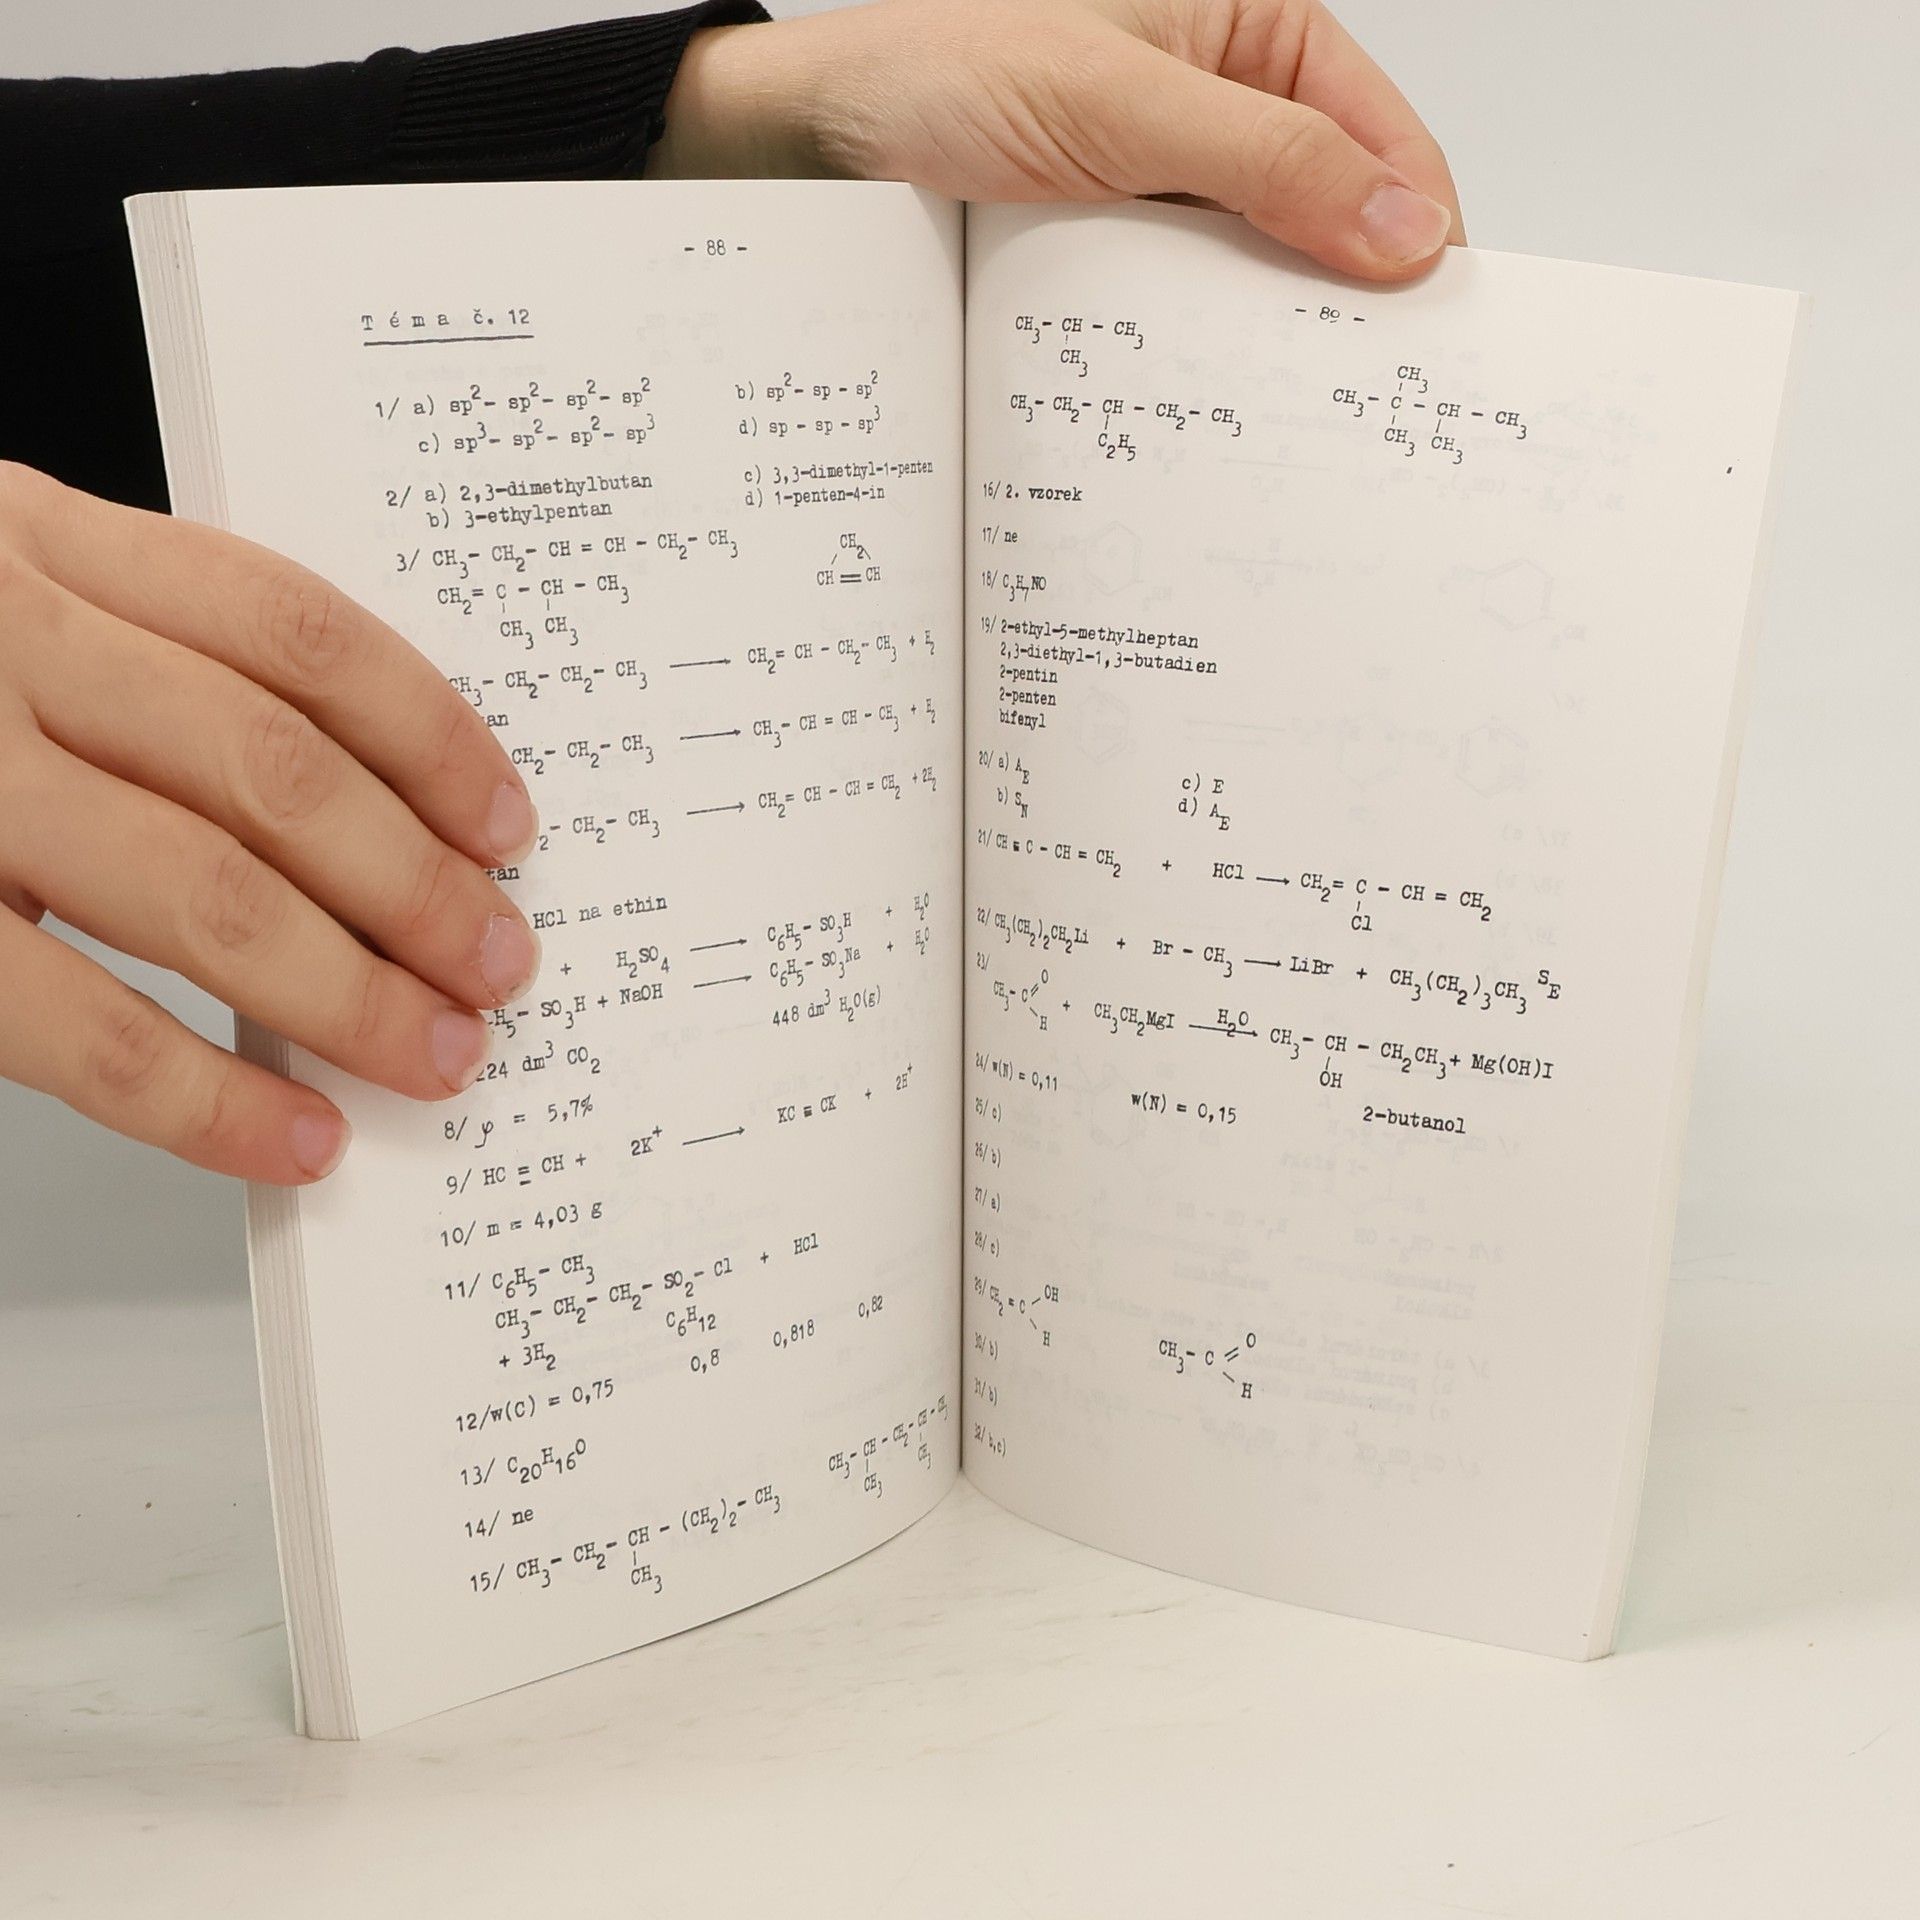 - 88 -
Téma č. 12
1/ a) sp²- sp²- sp²- sp² b) sp²- sp - sp²
c) sp³- sp²- sp²- sp³ d) sp - sp - sp³
2/ a) 2,3-dimethylbutan c) 3,3-dimethyl-1-penten
b) 3-ethylpentan d) 1-penten-4-in
3/ CH₃- CH₂- CH = CH - CH₂- CH₃ CH₂
CH = CH
CH₂= C - CH - CH₃
CH₃ CH₃
CH₃- CH₂- CH₂- CH₃ ⟶ CH₂= CH - CH₂- CH₃ + H₂
CH₂- CH₂- CH₃ ⟶ CH₃- CH = CH - CH₃ + H₂
- CH₂- CH₃ ⟶ CH₂= CH - CH = CH₂ + 2H₂
HCl na ethin
+ H₂SO₄ ⟶ C₆H₅- SO₃H + H₂O
H₅- SO₃H + NaOH ⟶ C₆H₅- SO₃Na + H₂O
224 dm³ CO₂ 448 dm³ H₂O(g)
8/ φ = 5,7%
9/ HC ≡ CH + 2K⁺ ⟶ KC ≡ CK + 2H⁺
10/ m = 4,03 g
11/ C₆H₅- CH₃
CH₃- CH₂- CH₂- SO₂- Cl + HCl
+ 3H₂ C₆H₁₂
12/w(C) = 0,75 0,8 0,818 0,82
13/ C₂₀H₁₆O
14/ ne
15/ CH₃- CH₂- CH - (CH₂)₂- CH₃ CH₃- CH - CH₂- CH - CH₃
CH₃ CH₃ CH₃
- 89 -
CH₃- CH - CH₃
CH₃
CH₃
CH₃- CH₂- CH - CH₂- CH₃ CH₃- C - CH - CH₃
C₂H₅ CH₃ CH₃
16/ 2. vzorek
17/ ne
18/ C₃H₇NO
19/ 2-ethyl-5-methylheptan
2,3-diethyl-1,3-butadien
2-pentin
2-penten
bifenyl
20/ a) A_E c) E
b) S_N d) A_E
21/ CH ≡ C - CH = CH₂ + HCl ⟶ CH₂= C - CH = CH₂
Cl
22/ CH₃(CH₂)₂CH₂Li + Br - CH₃ ⟶ LiBr + CH₃(CH₂)₃CH₃ S_E
23/
O
CH₃- C + CH₃CH₂MgI H₂O ⟶ CH₃- CH - CH₂CH₃+ Mg(OH)I
H OH
2-butanol
24/ w(N) = 0,11 w(N) = 0,15
25/ c)
26/ b)
27/ a)
28/ c)
29/ CH₂ = C OH
H
CH₃- C O
H
30/ b)
31/ b)
32/ b,c)